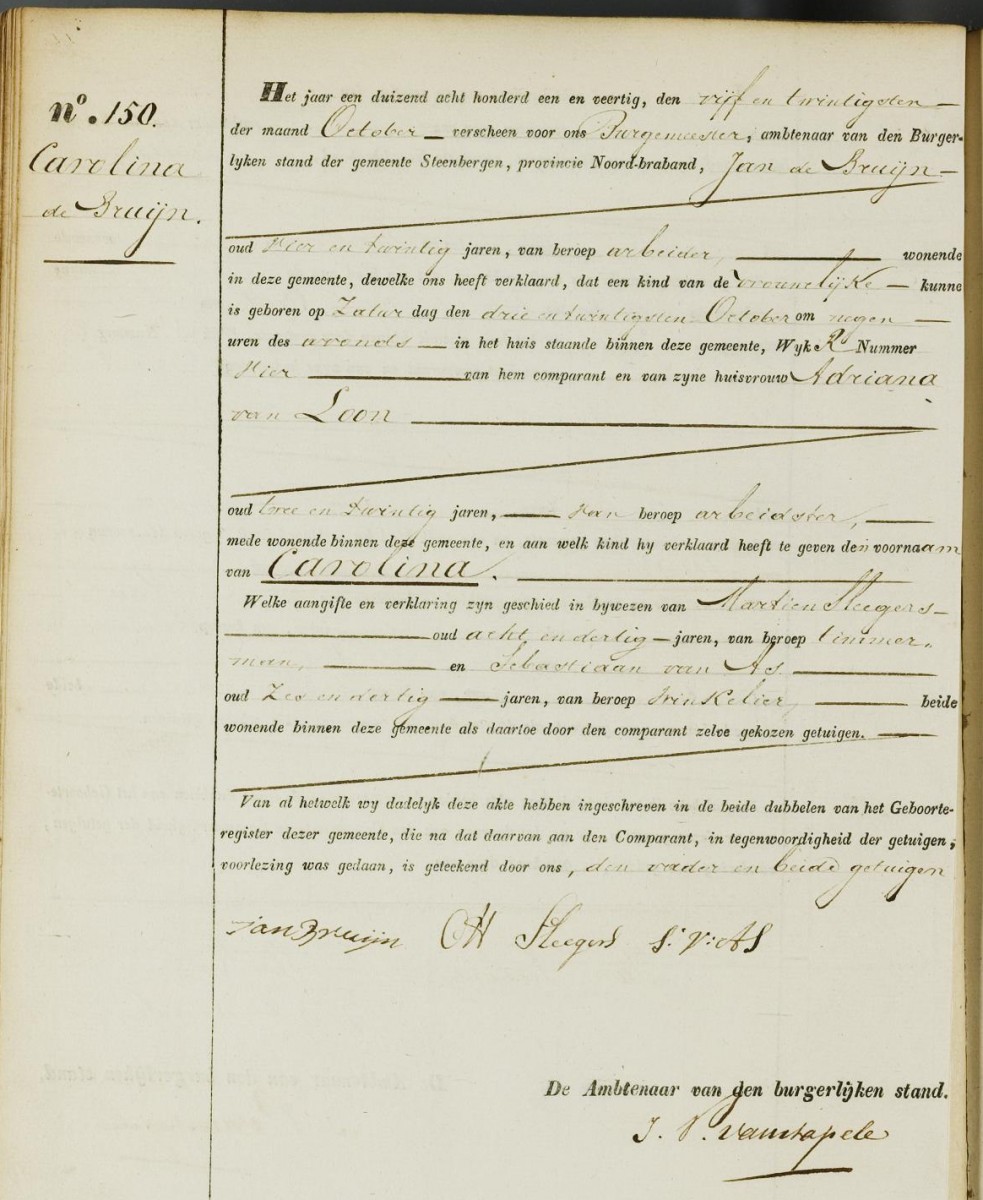 nº. 150.
Carolina
de Bruijn.
Het jaar een duizend acht honderd een en veertig, den vijf en twintigsten
der maand October verscheen voor ons Burgemeester, ambtenaar van den Burger-
lyken stand der gemeente Steenbergen, provincie Noord-braband, Jan de Bruijn
oud vier en twintig jaren, van beroep arbeider, wonende
in deze gemeente, dewelke ons heeft verklaard, dat een kind van de vrouwelijke kunne
is geboren op Zatur dag den drie en twintigsten October om negen
uren des avonds in het huis staande binnen deze gemeente, Wyk R Nummer
vier van hem comparant en van zyne huisvrouw Adriana
van Loon
oud twee en twintig jaren, van beroep arbeidster,
mede wonende binnen deze gemeente, en aan welk kind hy verklaard heeft te geven den voornaam
van Carolina.
Welke aangifte en verklaring zyn geschied in bywezen van Martien Sleegers
oud acht en dertig jaren, van beroep timmer-
man, en Sebastiaan van As
oud zes en dertig jaren, van beroep winkelier, beide
wonende binnen deze gemeente als daartoe door den comparant zelve gekozen getuigen.
Van al hetwelk wy dadelyk deze akte hebben ingeschreven in de beide dubbelen van het Geboorte-
register dezer gemeente, die na dat daarvan aan den Comparant, in tegenwoordigheid der getuigen,
voorlezing was gedaan, is geteekend door ons, den vader en beide getuigen
Jan Bruijn Sleegers S. V: AS
De Ambtenaar van den burgerlijken stand.
J. P. vanstapele